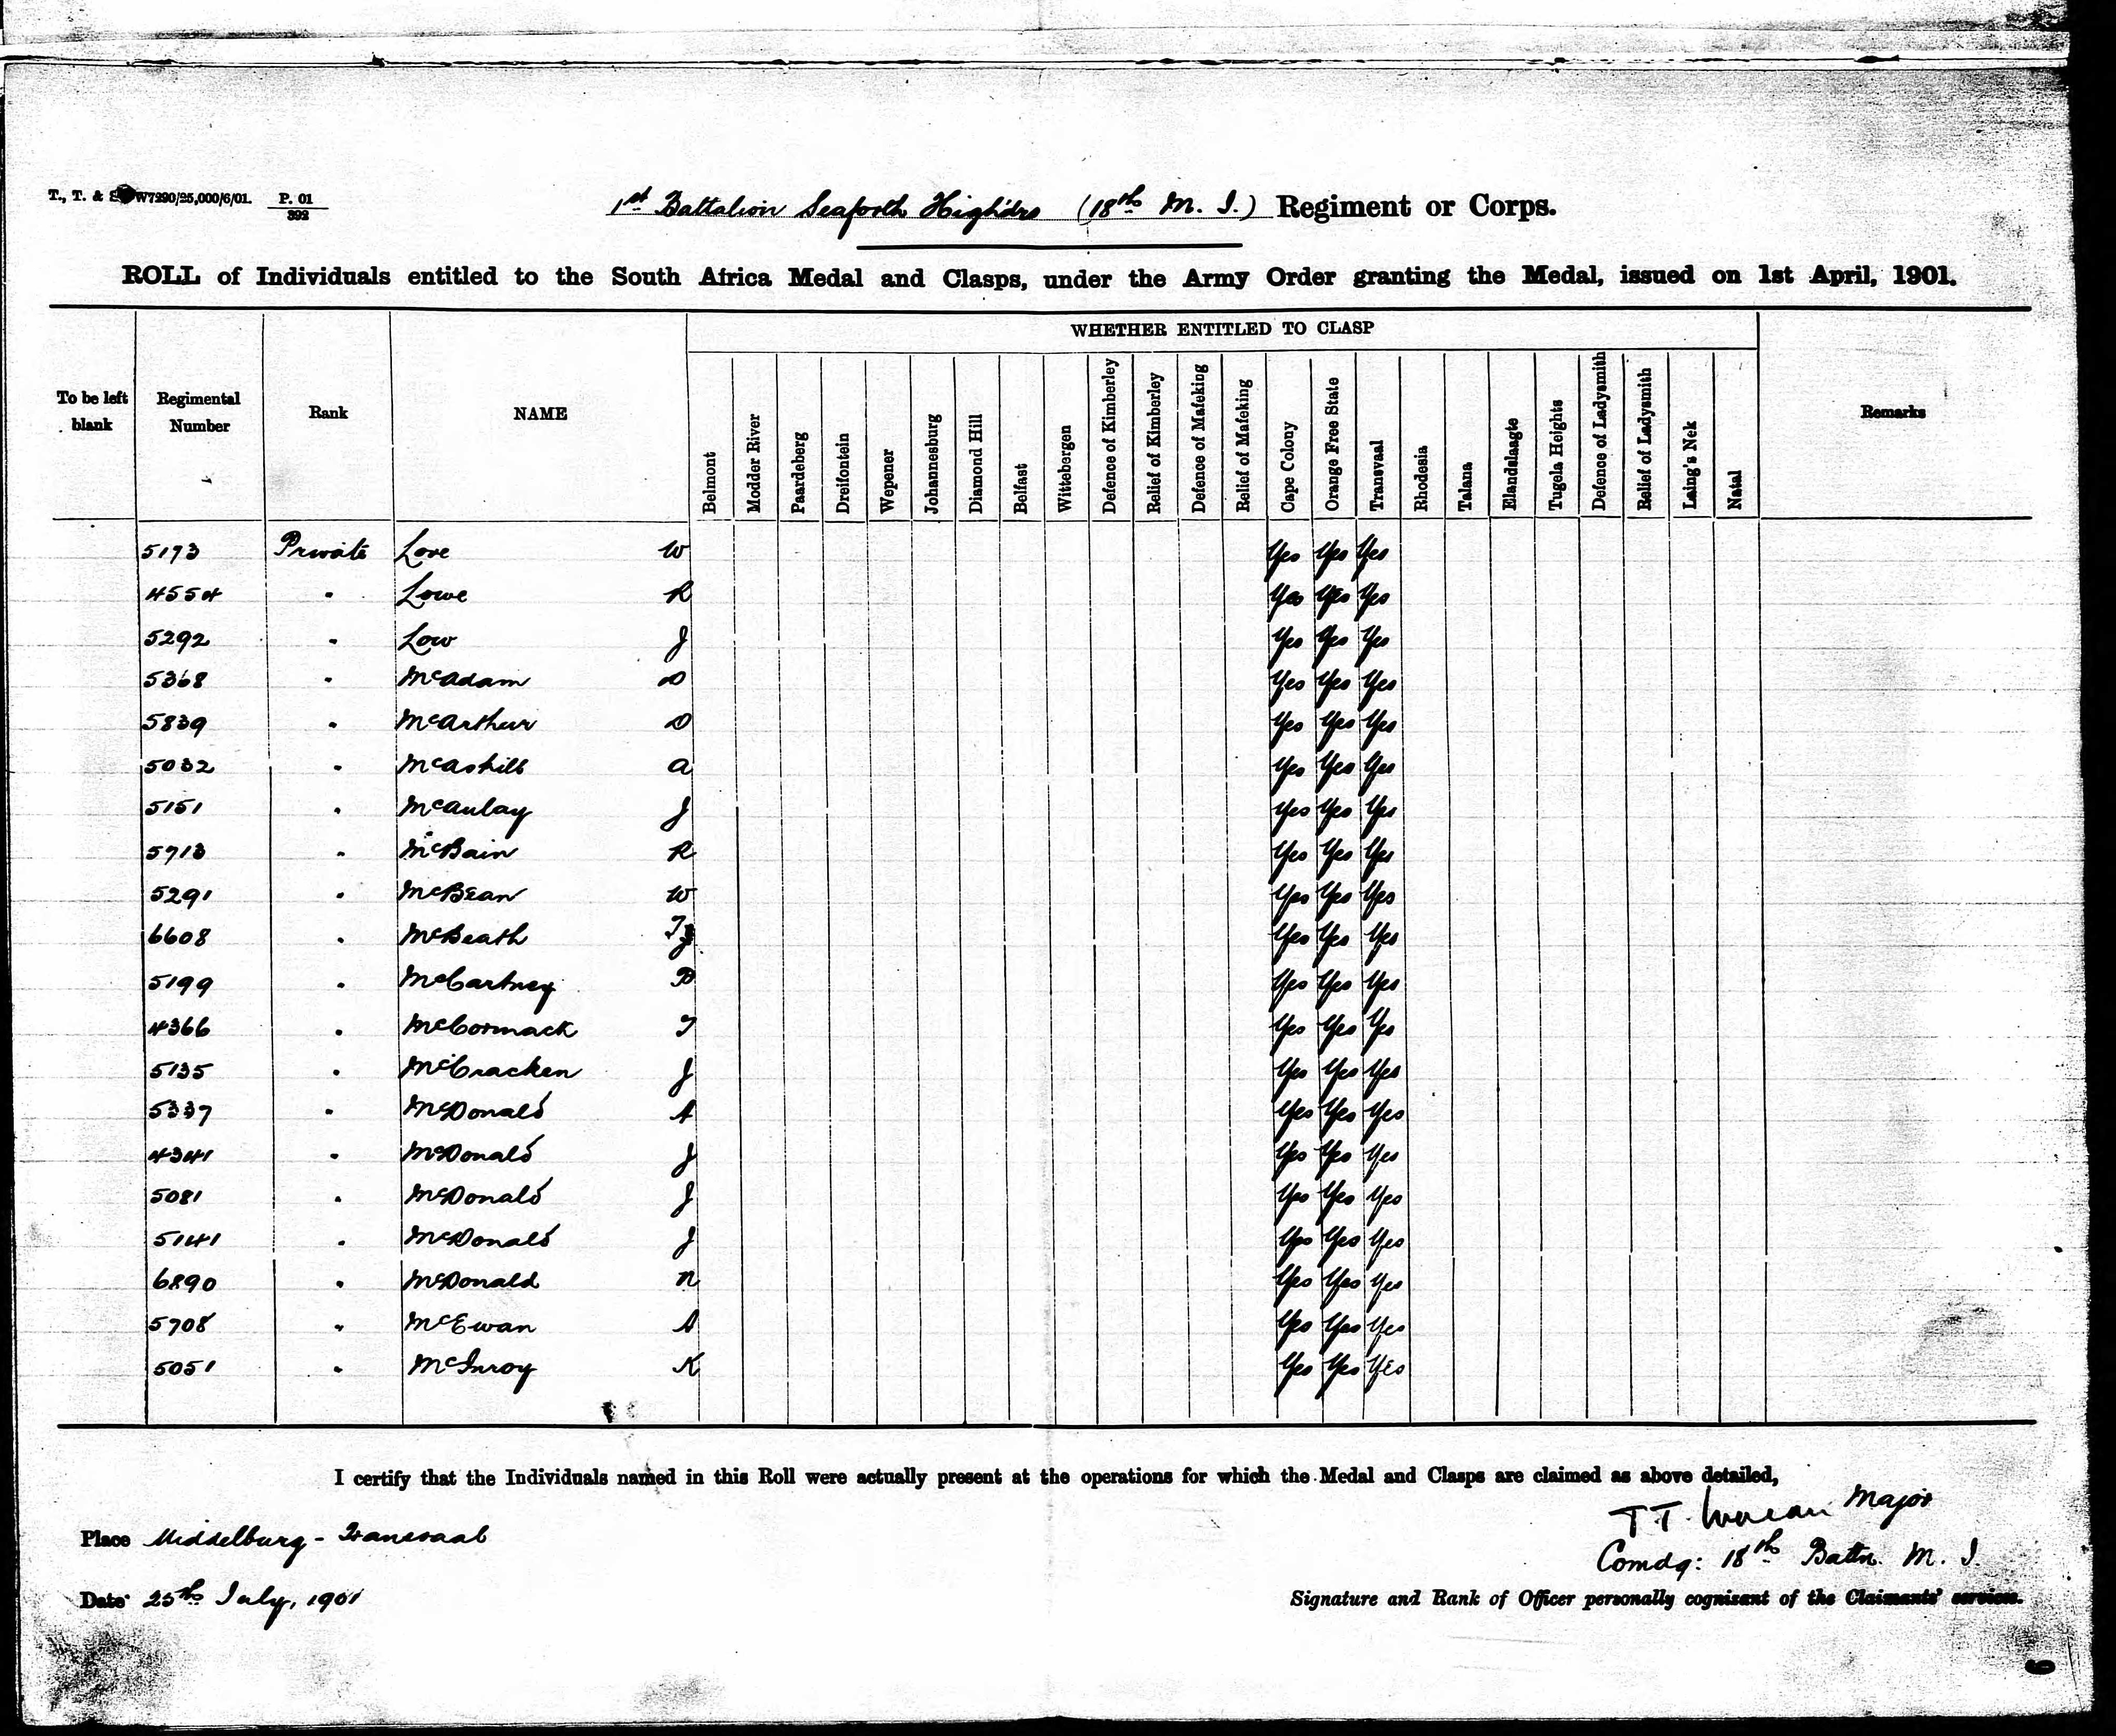 T., T. & S W7290/25,000/6/01. P. 01/392
1st Battalion Seaforth Highdrs (18th M. I.) Regiment or Corps.
ROLL of Individuals entitled to the South Africa Medal and Clasps, under the Army Order granting the Medal, issued on 1st April, 1901.
WHETHER ENTITLED TO CLASP
To be left blank Regimental Number Rank NAME Belmont Modder River Paardeberg Dreifontein Wepener Johannesburg Diamond Hill Belfast Wittebergen Defence of Kimberley Relief of Kimberley Defence of Mafeking Relief of Mafeking Cape Colony Orange Free State Transvaal Rhodesia Talana Elandslaagte Tugela Heights Defence of Ladysmith Relief of Ladysmith Laing's Nek Natal Remarks
5173 Private Love W Yes Yes Yes
4554 " Lowe R Yes Yes Yes
5292 " Low J Yes Yes Yes
5368 " McAdam D Yes Yes Yes
5839 " McArthur D Yes Yes Yes
5032 " McAskill A Yes Yes Yes
5151 " McAulay J Yes Yes Yes
5713 " McBain R Yes Yes Yes
5291 " McBean W Yes Yes Yes
6608 " McBeath J Yes Yes Yes
5199 " McCartney B Yes Yes Yes
4366 " McCormack T Yes Yes Yes
5135 " McCracken J Yes Yes Yes
5337 " McDonald A Yes Yes Yes
4341 " McDonald J Yes Yes Yes
5081 " McDonald J Yes Yes Yes
5141 " McDonald J Yes Yes Yes
6890 " McDonald N Yes Yes Yes
5708 " McEwan A Yes Yes Yes
5051 " McInroy K Yes Yes Yes
I certify that the Individuals named in this Roll were actually present at the operations for which the Medal and Clasps are claimed as above detailed,
T T. Major
Place Middelburg - Transvaal
Comdg: 18th Battn. M. I.
Date 25th July, 1901
Signature and Rank of Officer personally cognisant of the Claimants' services.
6